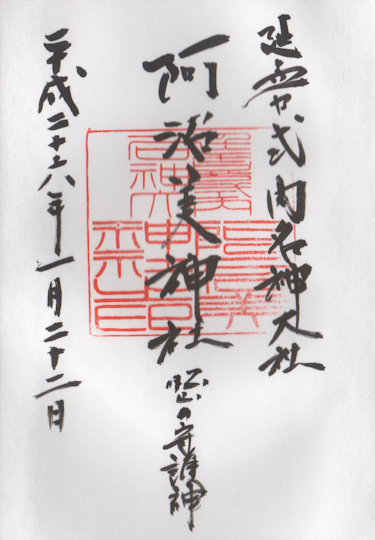 延喜式内名神大社
阿治美神社
の守護神
平成二十六年一月二十二日